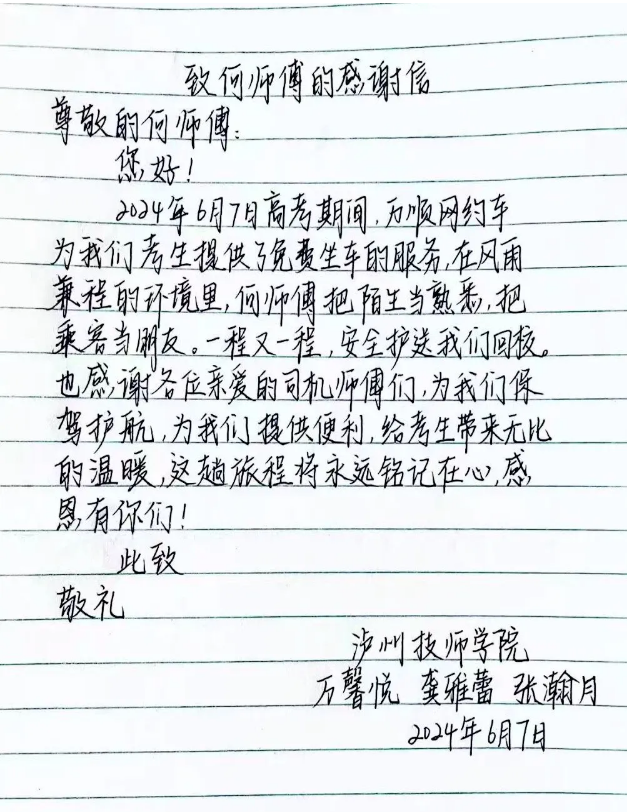 致何师傅的感谢信
尊敬的何师傅：
您好！
2024年6月7日高考期间，万顺网约车
为我们考生提供了免费坐车的服务，在风雨
兼程的环境里，何师傅把陌生当熟悉，把
乘客当朋友。一程又一程，安全护送我们回校。
也感谢各位亲爱的司机师傅们，为我们保
驾护航，为我们提供便利，给考生带来无比
的温暖，这趟旅程将永远铭记在心，感
恩有你们！
此致
敬礼
泸州技师学院
万馨悦 龚雅蕾 张瀚月
2024年6月7日